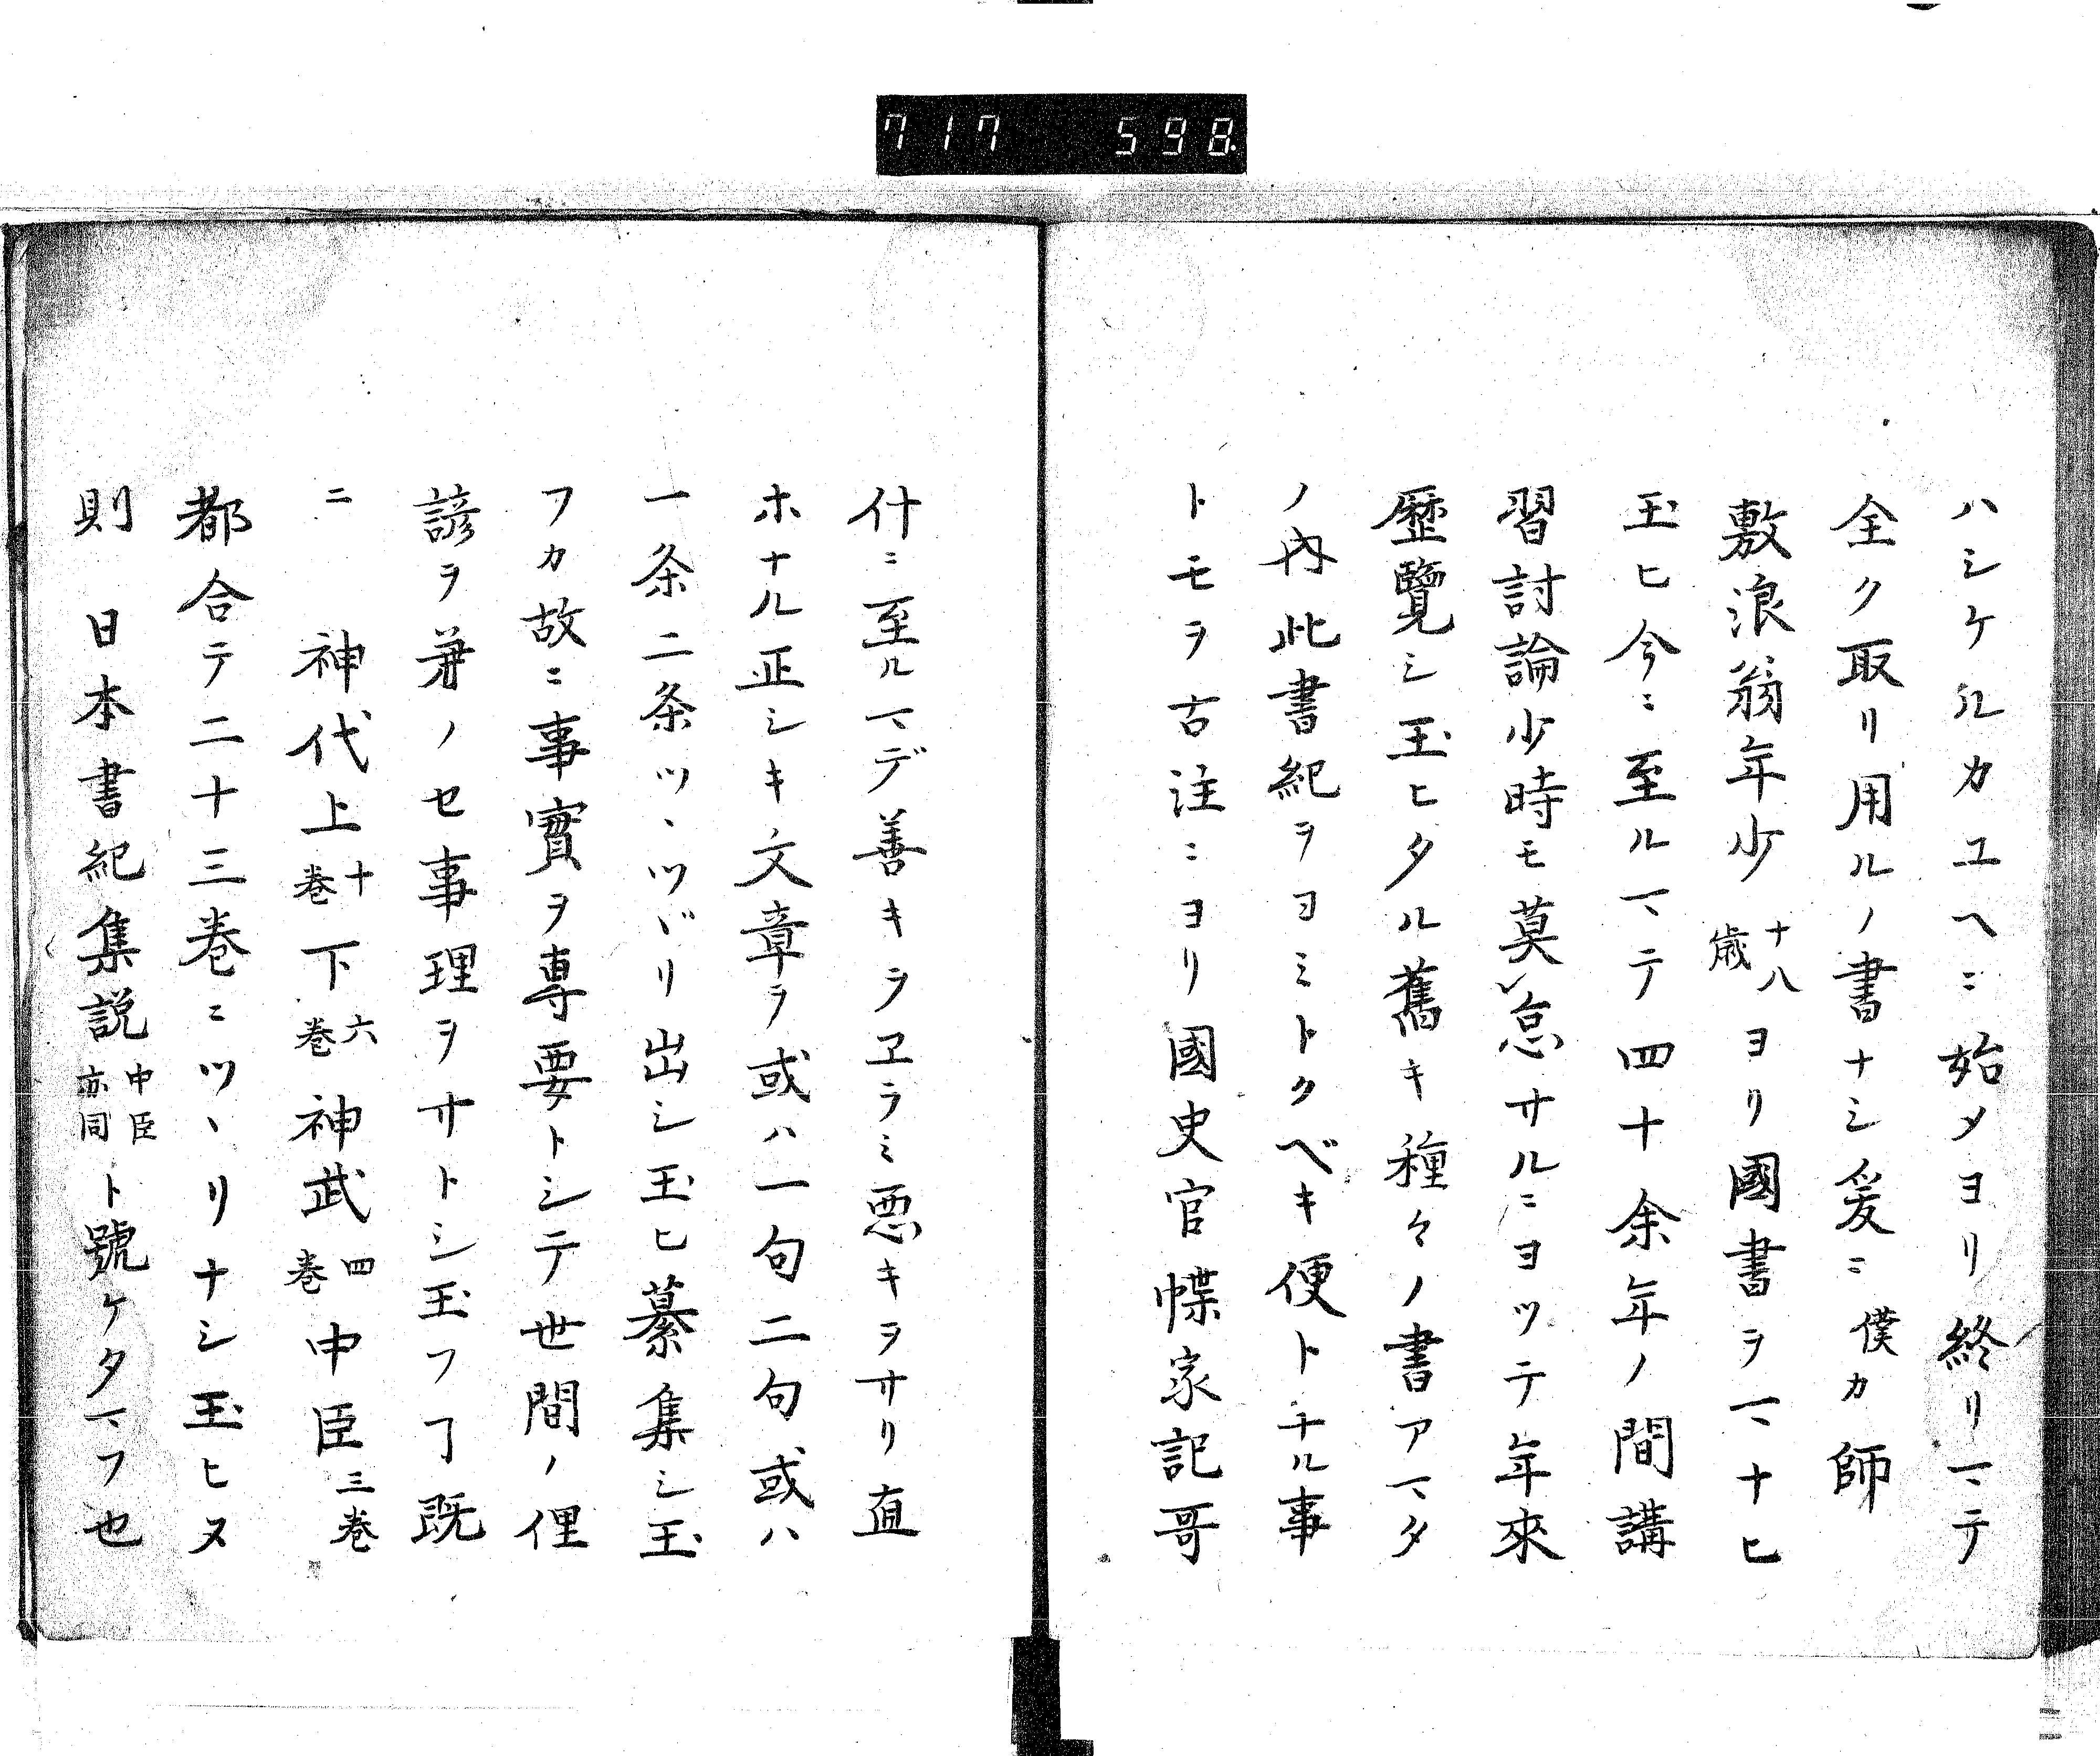 717 598
ハシケルカユヘニ始メヨリ終リマテ
全ク取リ用ルノ書ナシ爰ニ僕カ師
敷浪翁年少十八歳ヨリ國書ヲマナヒ
玉ヒ今ニ至ルマテ四十余年ノ間講
習討論少時モ莫怠サルニヨツテ年來
歴覽シ玉ヒタル舊キ種々ノ書アマタ
ノ內此書紀ヲヨミトクベキ便トナル事
トモヲ古注ニヨリ國史官牒家記哥
什ニ至ルマデ善キヲヱラミ悪キヲサリ直
ホナル正シキ文章ヲ或ハ一句二句或ハ
一条二条ツヽツヾリ出シ玉ヒ纂集シ玉
フカ故ニ事實ヲ専要トシテ世間ノ俚
諺ヲ兼ノセ事理ヲサトシ玉フヿ既
ニ 神代上十巻下六巻神武四巻中臣三巻
都合テ二十三巻ニツヽリナシ玉ヒヌ
則 日本書紀集説中臣亦同ト號ケタマフ也